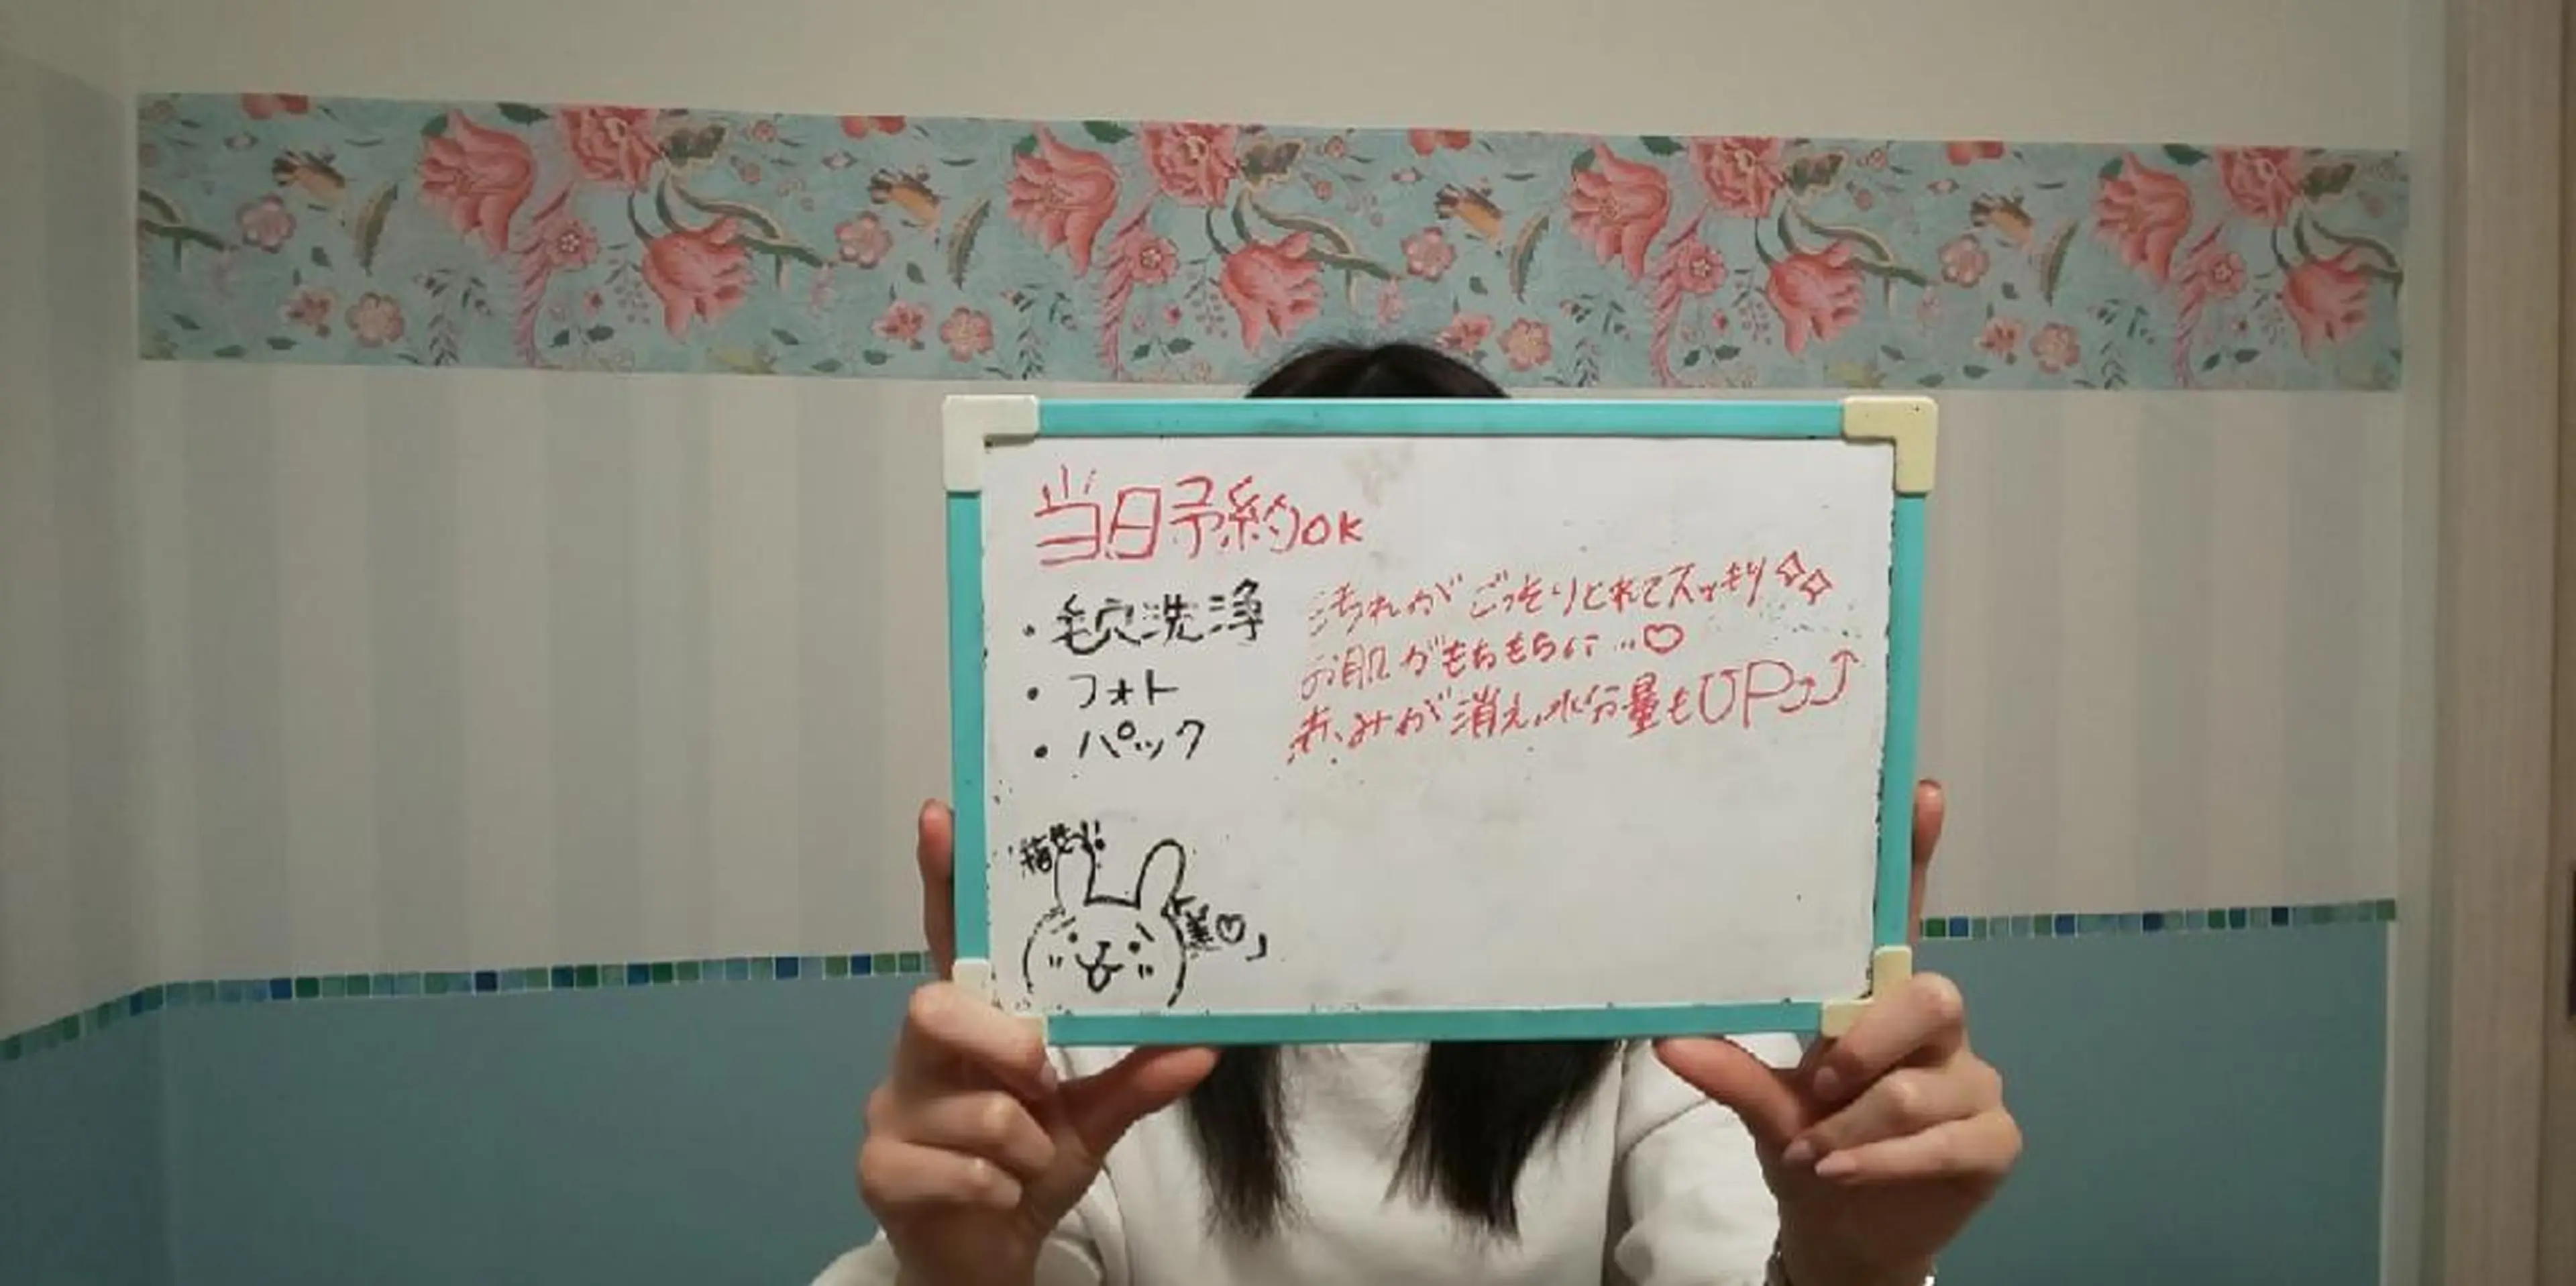 当日予約OK
・毛穴洗浄
・フォト
・パック
汚れがごっそりとれてスッキリ
お肌がもちもちに…♡
赤みが消え、水分量もUP
美♡」